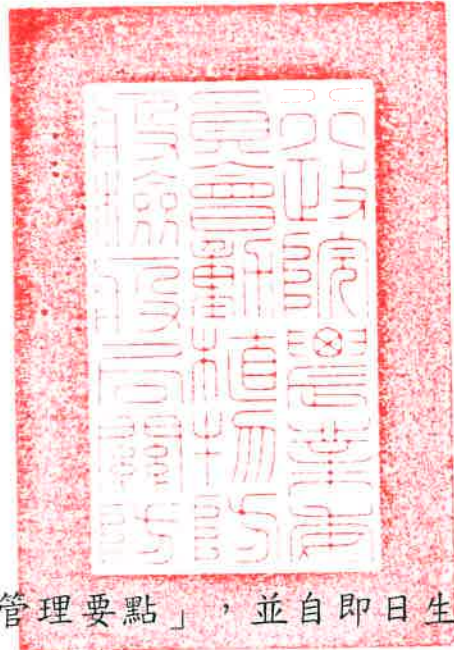 行政院農業委
員會動植物防
疫檢疫局關防
管理要點」，並自即日生